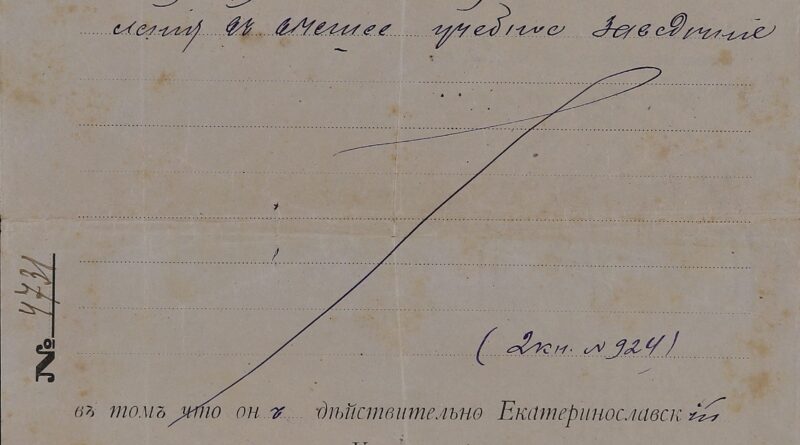 ленія въ высшее учебное заведеніе
№ 4731
(2 кн. № 924)
въ томъ что онъ дѣйствительно Екатеринославскій